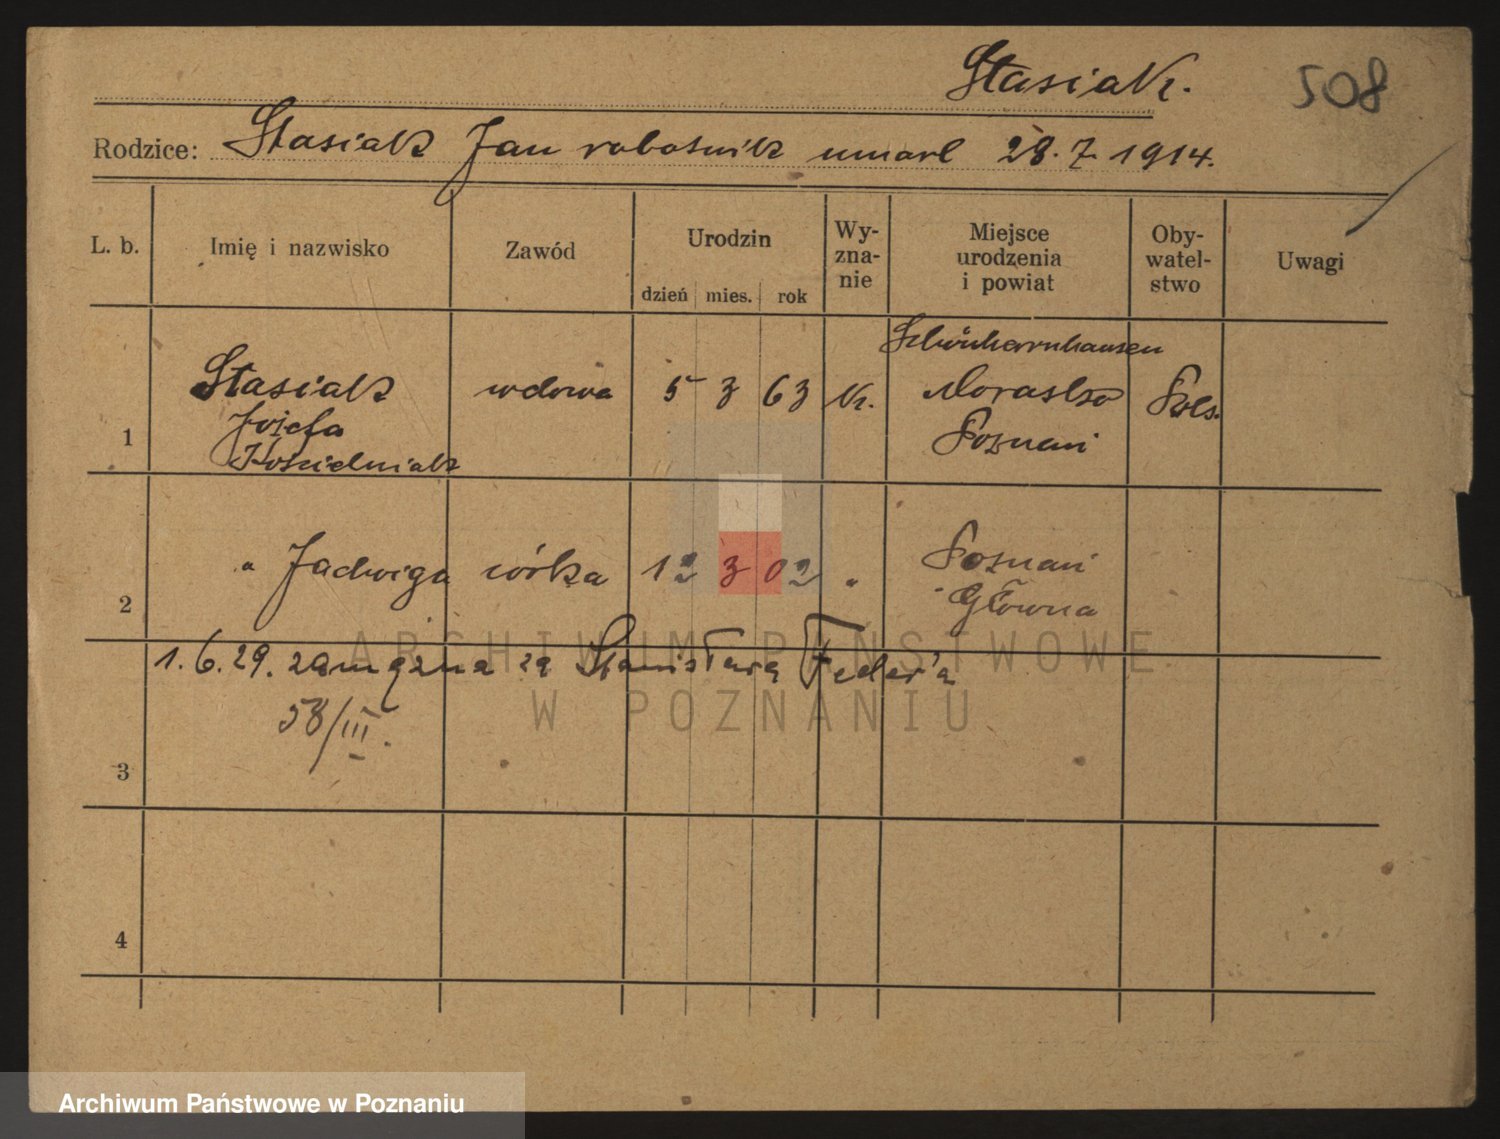 Stasiak.
508
Rodzice: Stasiak Jan robotnik umarł 28. 7. 1914.
L. b. Imię i nazwisko Zawód Urodzin dzień mies. rok Wy-zna-nie Miejsce urodzenia i powiat Oby-watel-stwo Uwagi
Schönherrnhausen
1 Stasiak wdowa 5 3 63 K. Morasko Pols.
Józefa Poznań
Kościelniak
2 " Jadwiga córka 12 3 02 " Poznań
Główna
1. 6. 29. zamężna za Stanisława Feder'a
58/III.
3
4
ARCHIWUM PAŃSTWOWE
W POZNANIU
Archiwum Państwowe w Poznaniu